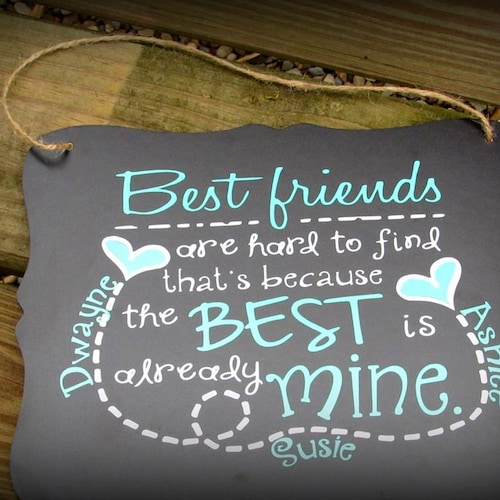 Best friends
are hard to find
that's because
the BEST is
already mine.
Dwayne
Susie